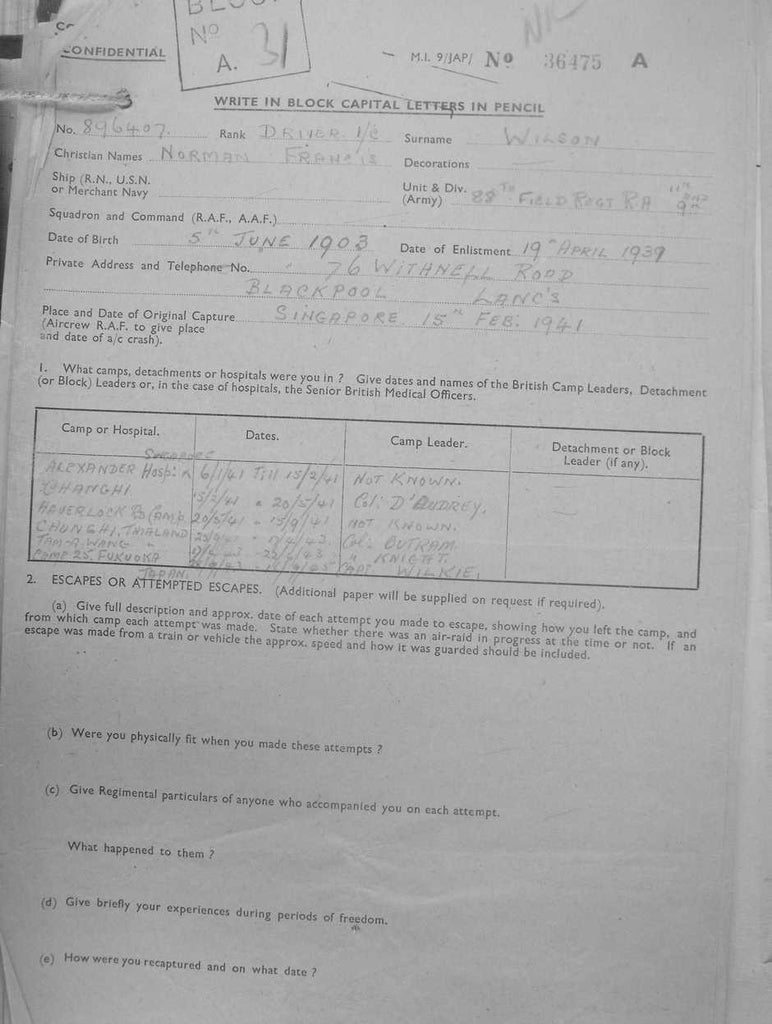 BLOCK
No
A. 31
CONFIDENTIAL
M.I. 9/JAP/ No 36475 A
WRITE IN BLOCK CAPITAL LETTERS IN PENCIL
No. 896407. Rank DRIVER I/C Surname WILSON
Christian Names NORMAN FRANCIS Decorations
Ship (R.N., U.S.N. or Merchant Navy Unit & Div. (Army) 88TH FIELD REGT R.A 11TH
Squadron and Command (R.A.F., A.A.F.)
Date of Birth 5TH JUNE 1903 Date of Enlistment 19TH APRIL 1939
Private Address and Telephone No. 76 WITHNELL ROAD
BLACKPOOL LANC'S
Place and Date of Original Capture SINGAPORE 15TH FEB: 1941
(Aircrew R.A.F. to give place
and date of a/c crash).
1. What camps, detachments or hospitals were you in ? Give dates and names of the British Camp Leaders, Detachment
(or Block) Leaders or, in the case of hospitals, the Senior British Medical Officers.
Camp or Hospital. Dates. Camp Leader. Detachment or Block
Leader (if any).
SINGAPORE
ALEXANDER HOSP: 6/1/41 TILL 15/2/41 NOT KNOWN.
CHANGHI 15/2/41 " 20/5/41 COL: D'AUDREY.
HAVERLOCK RD CAMP. 20/5/41 NOT KNOWN.
CHUNGHI, THIALAND COL: OUTRAM
TAM-A-WANG " " KNIGHT.
CAMP 25. FUKUOKA CAPT: WILKIE.
JAPAN.
2. ESCAPES OR ATTEMPTED ESCAPES. (Additional paper will be supplied on request if required).
(a) Give full description and approx. date of each attempt you made to escape, showing how you left the camp, and
from which camp each attempt was made. State whether there was an air-raid in progress at the time or not. If an
escape was made from a train or vehicle the approx. speed and how it was guarded should be included.
(b) Were you physically fit when you made these attempts ?
(c) Give Regimental particulars of anyone who accompanied you on each attempt.
What happened to them ?
(d) Give briefly your experiences during periods of freedom.
(e) How were you recaptured and on what date ?